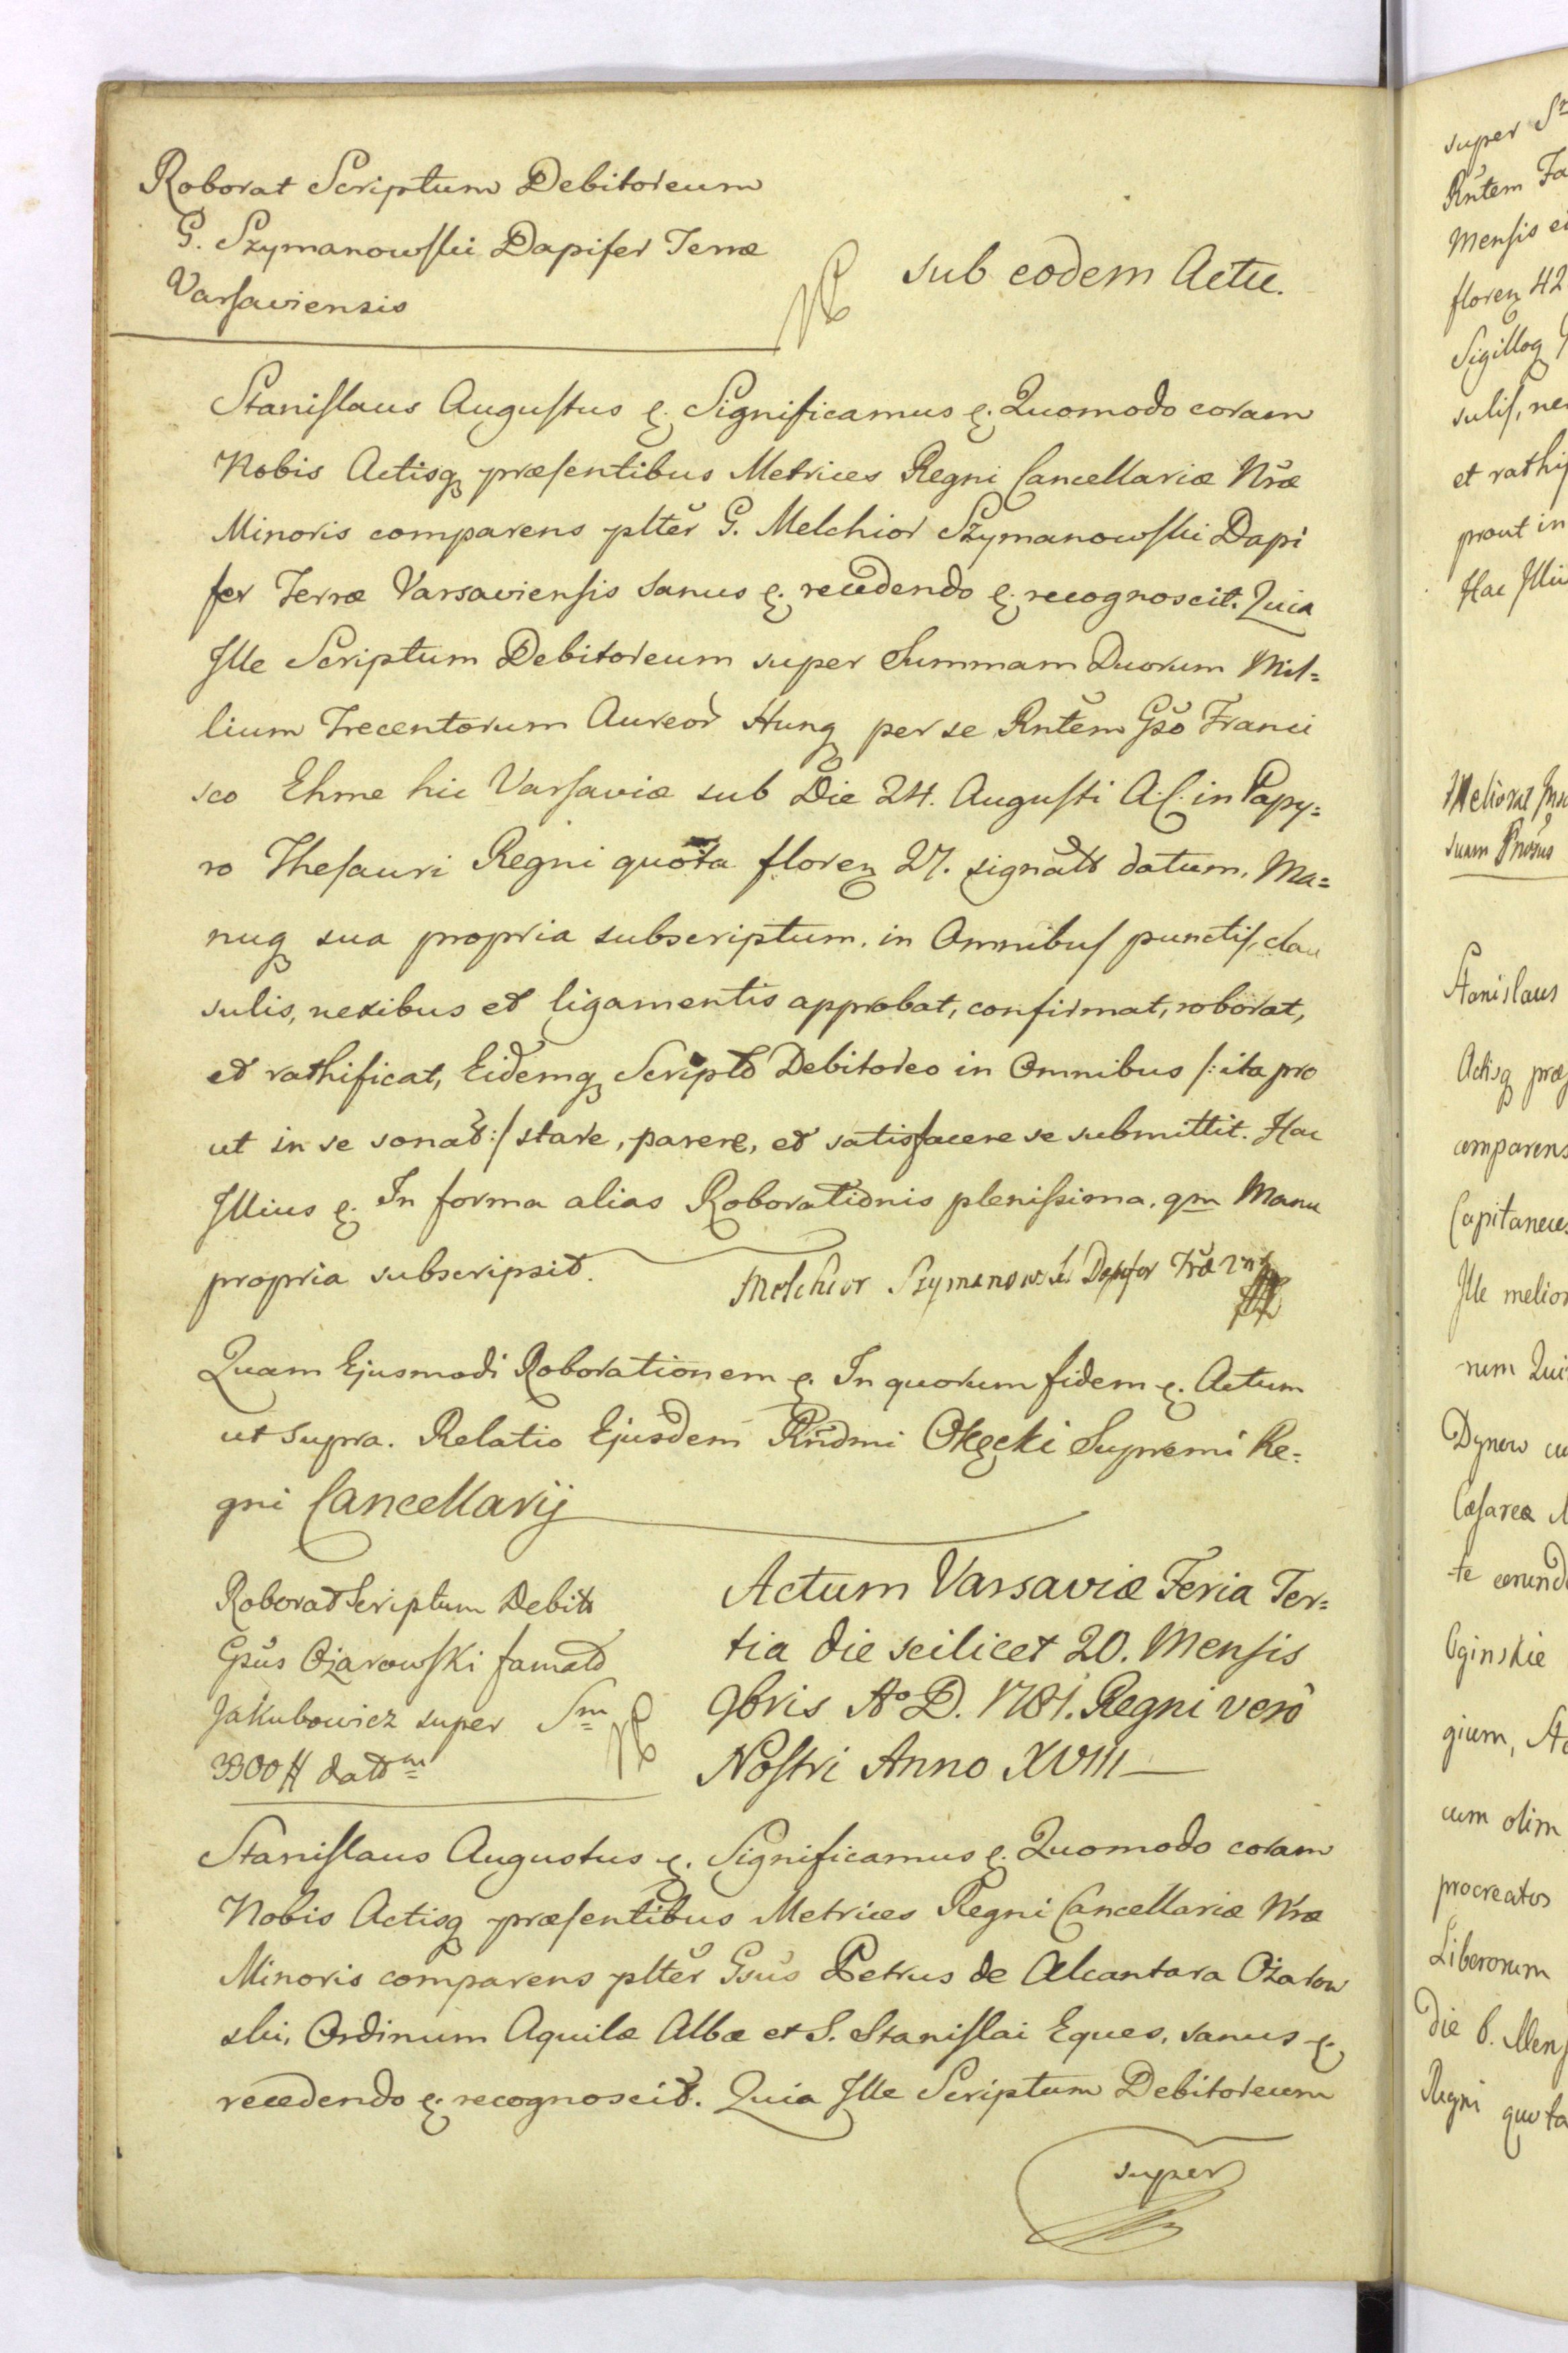 Roborat Scriptum Debitoreum
G. Szymanowſki Dapifer Terræ
Varſaviensis
sub eodem Actu.
Staniſlaus Auguſtus &. Significamus &. Quomodo coram
Nobis Actisq præſentibus Metrices Regni Cancellariæ Nr̃æ
Minoris comparens pltẽr G. Melchior Szymanowſki Dapi
fer Terræ Varsavienſis sanus &. recedendo &. recognoscit. Quia
Ille Scriptum Debitoreum super Summam Duorum Mil=
lium Trecentorum Aureor Hung per se Rntẽm Gsõ Franci
sco Ehme hic Varſaviæ sub Die 24. Auguſti A.C. in Papy=
ro Theſauri Regni quota floren 27. signatt datum, Ma=
nuq sua propria subscriptum, in Omnibuſ punctiſ, clau
sulis, nexibus et ligamentis approbat, confirmat, roborat,
et rathificat, Eidemq Scripto Debitoreo in Omnibus /: ita pro
ut in se sonat :/ stare, parere, et satisfacere se submittit. Hac
Illius &. In forma alias Roborationis pleniſsima, qm Manu
propria subscripsit.
Melchior Szymanowski Dapifer Træ
Quam Ejusmodi Roborationem &. In quorum fidem &. Actum
ut supra. Relatio Ejusdem Rñdmi Okęcki Supremi Re=
gni Cancellarij
Roborat Scriptum Debitt
Gsũs Ożarowſki famato
Jakubowicz super Sm
3300 # datt m
Actum Varsaviæ Feria Ter=
tia die scilicet 20. Menſis
9bris Aº D. 1781. Regni verò
Noſtri Anno XVIII
Staniſlaus Augustus &. Significamus &. Quomodo coram
Nobis Actisq præſentibus Metrices Regni Cancellariæ Nræ
Minoris comparens pltẽr Gsũs Petrus de Alcantara Ożarow
ski, Ordinum Aquilæ Albæ et S. Staniſlai Eques, sanus &.
recedendo &. recognoscit. Quia Ille Scriptum Debitoreum
super
super
Rñtem
Menſis
floren 42
Sigilloq
suliſ,
et
prout in
Hac Illiu
Meliorat
suam
Stanislaus
Actisq
comparens
Ille
num
Dynow
Cæſarea
Oginskie
gium,
cum olim
procreatos
Liberorum
Die 6.
Regni quota